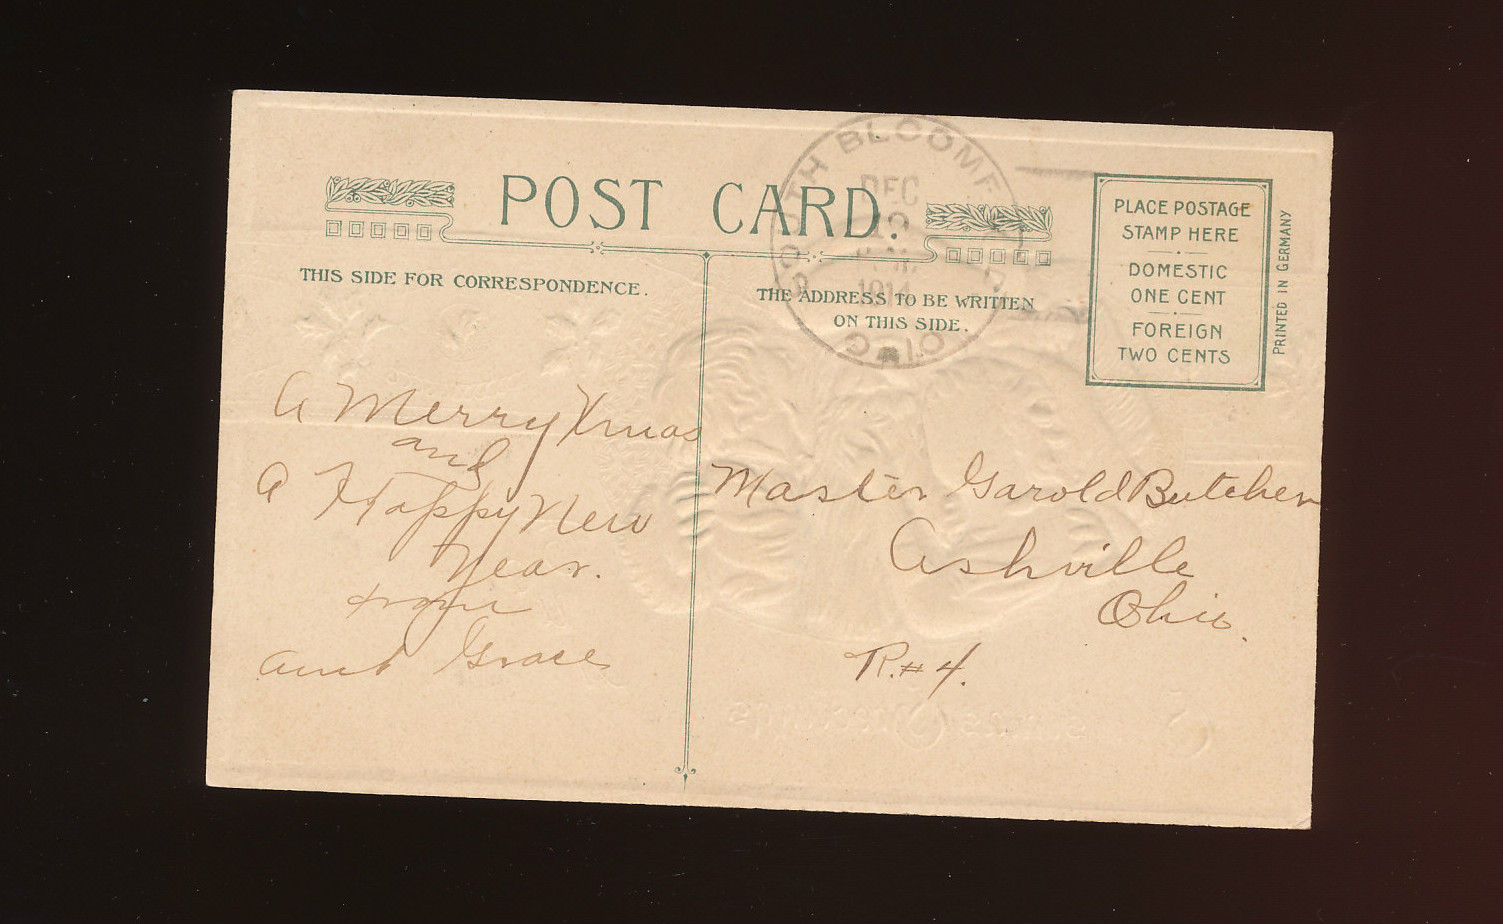 POST CARD.
THIS SIDE FOR CORRESPONDENCE.
THE ADDRESS TO BE WRITTEN
ON THIS SIDE.
PLACE POSTAGE
STAMP HERE
DOMESTIC
ONE CENT
FOREIGN
TWO CENTS
PRINTED IN GERMANY
DEC
1914
A Merry Xmas
and
A Happy New
Year.
from
Aunt Grace
Master Garold Butcher
Ashville
Ohio.
R.#4.